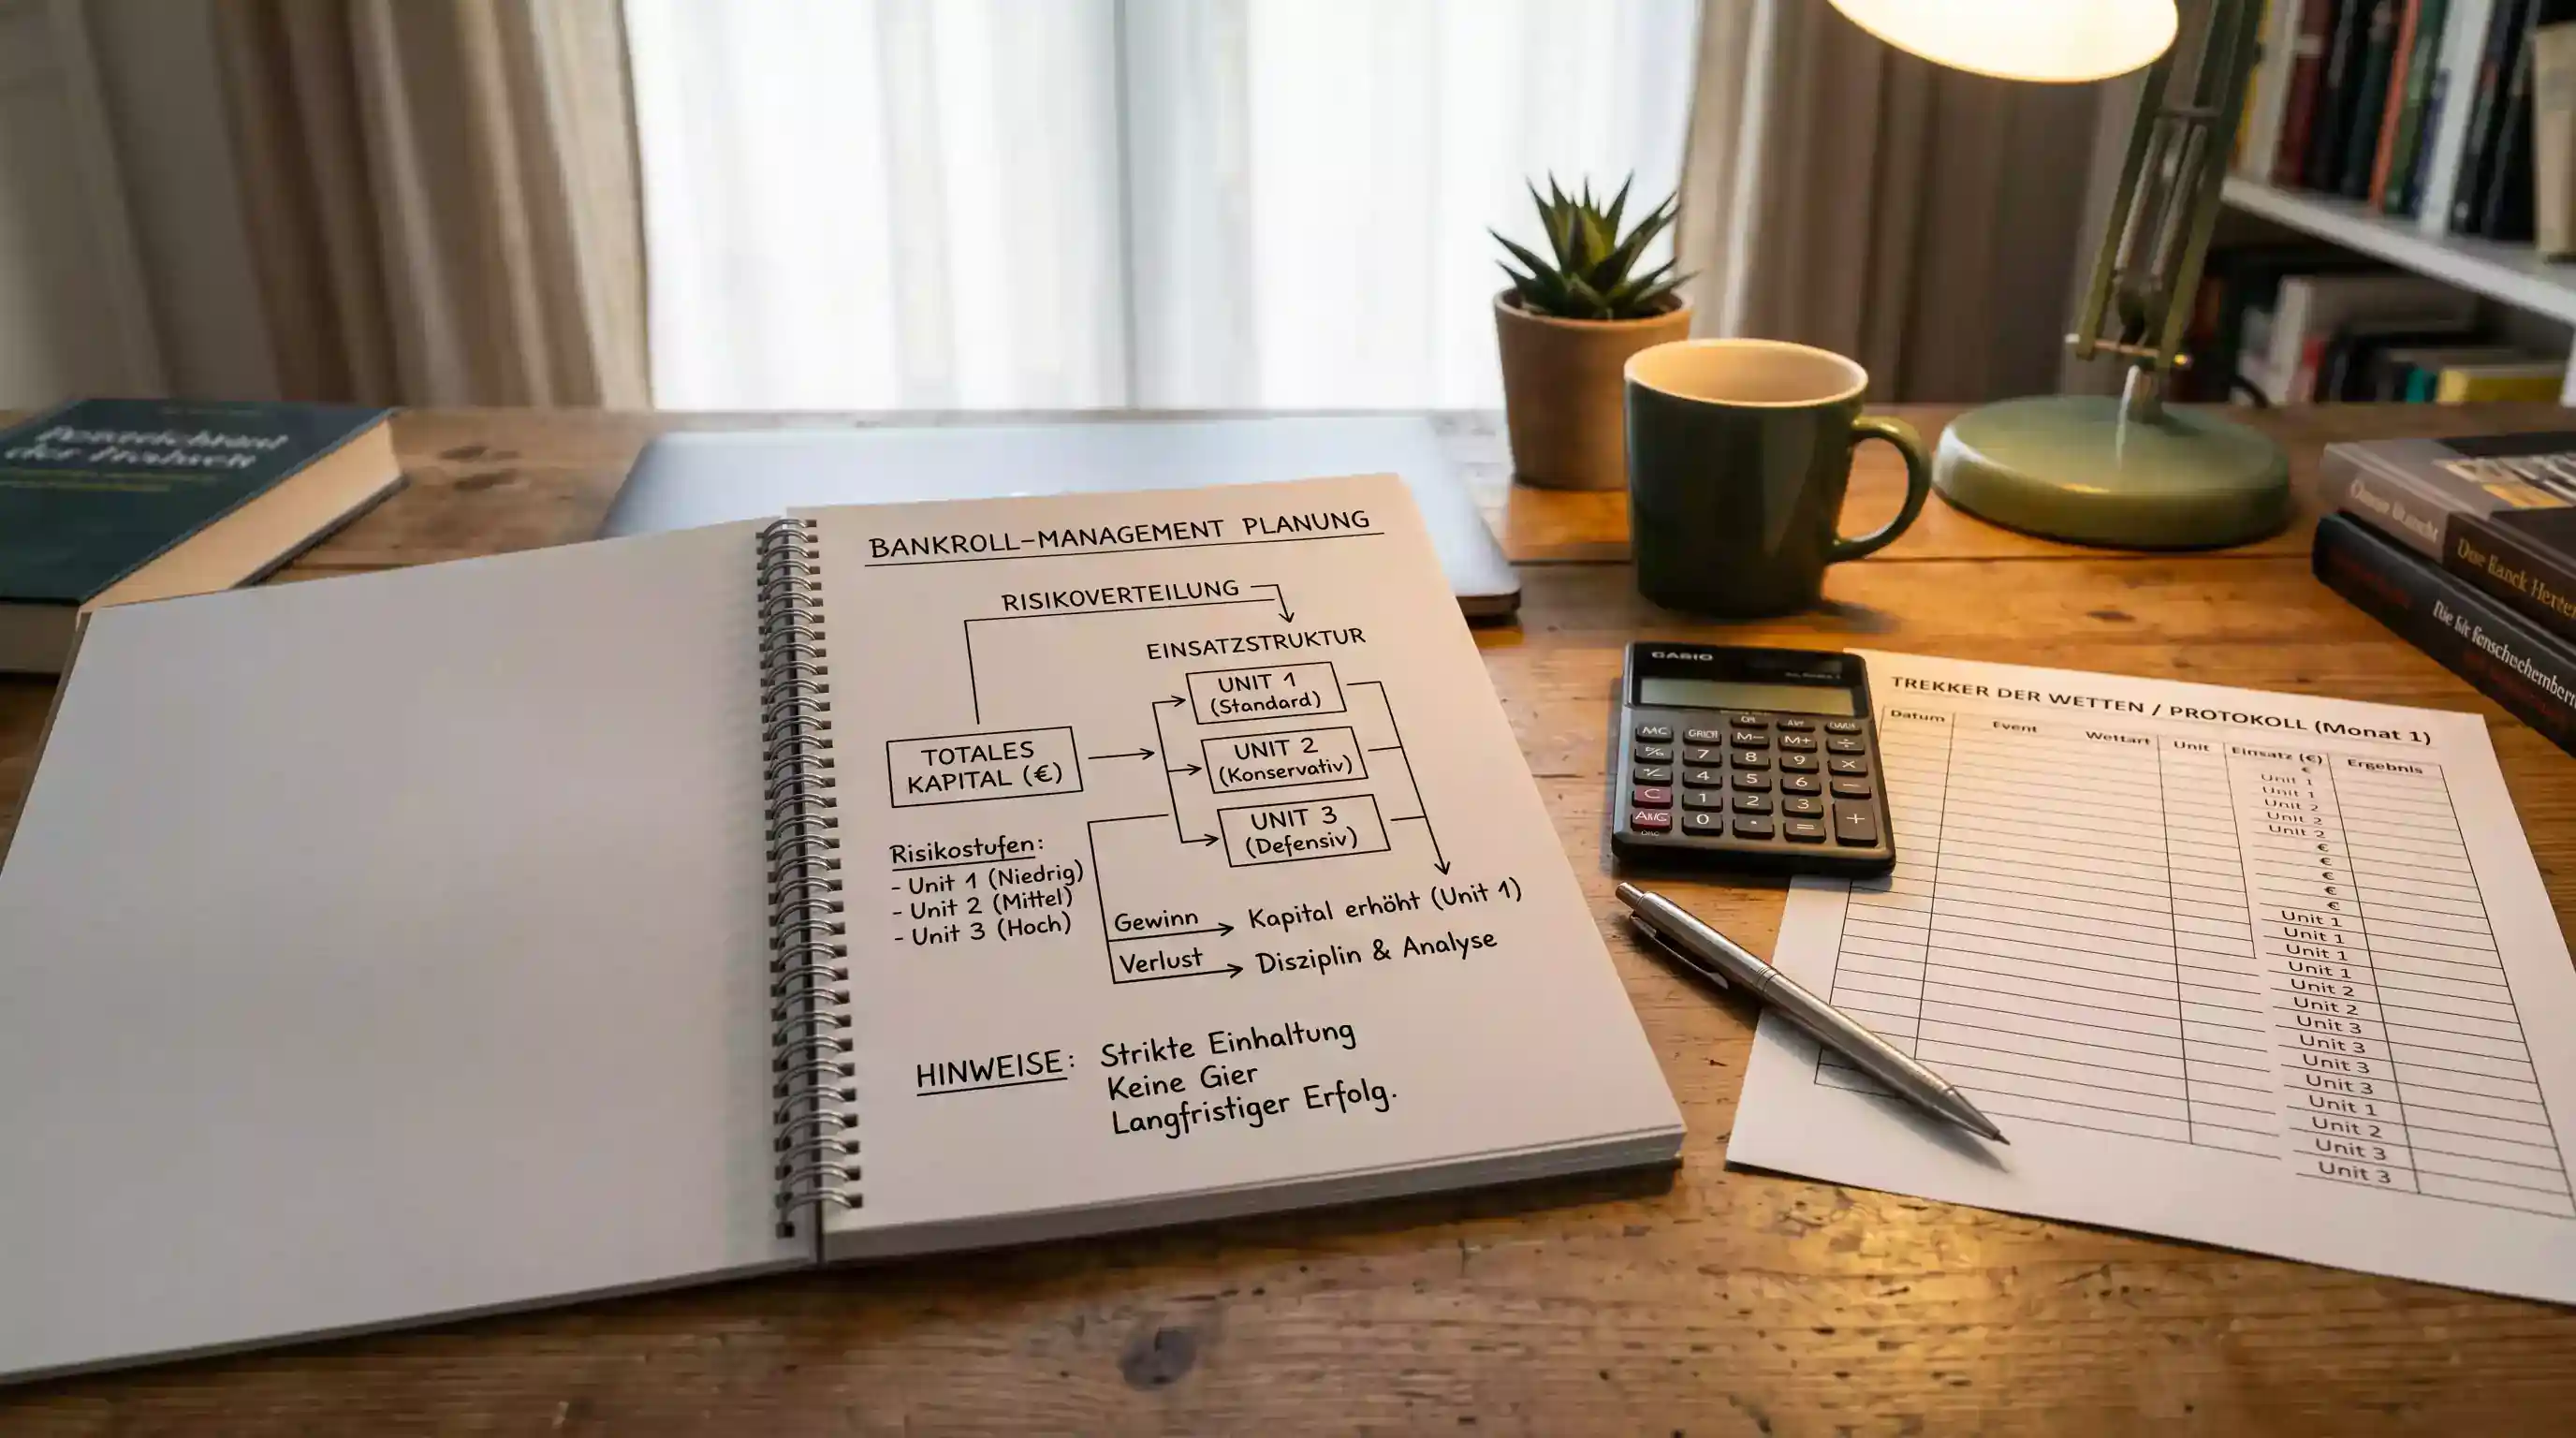 BANKROLL-MANAGEMENT PLANUNG
RISIKOVERTEILUNG
EINSATZSTRUKTUR
UNIT 1
(Standard)
TOTALES
KAPITAL (€)
UNIT 2
(Konservativ)
UNIT 3
(Defensiv)
Risikostufen:
- Unit 1 (Niedrig)
- Unit 2 (Mittel)
- Unit 3 (Hoch)
Gewinn
Kapital erhöht (Unit 1)
Verlust
Disziplin & Analyse
HINWEISE: Strikte Einhaltung
Keine Gier
Langfristiger Erfolg.
CASIO
MC
M-
M+
÷
%
7
8
9
×
+/-
4
5
6
−
C
1
2
3
+
0
·
=
TREKKER DER WETTEN / PROTOKOLL (Monat 1)
Datum Event Wettart Unit Einsatz (€) Ergebnis
€
Unit 1
Unit 1
Unit 2
Unit 2
Unit 2
€
€
€
€
€
Unit 1
Unit 1
Unit 1
Unit 1
Unit 2
Unit 2
Unit 3
Unit 3
Unit 3
Unit 3
Unit 1
Unit 2
Unit 3
Unit 3